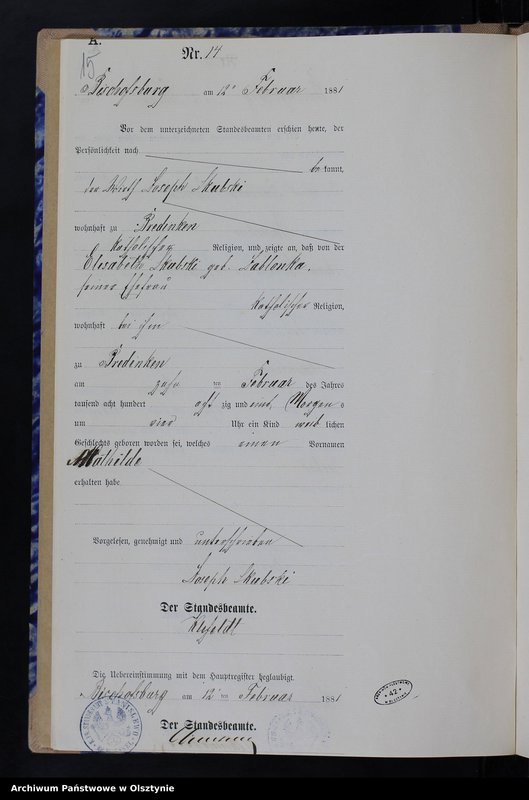 A.
15
Nr. 14
Bischofsburg am 12ten Februar 1881
Vor dem unterzeichneten Standesbeamten erschien heute, der
Persönlichkeit nach
be kannt,
der Wirth Joseph Skubski
wohnhaft zu Bredenken
katholischer Religion, und zeigte an, daß von der
Elisabeth Skubski geb. Zablonka,
seiner Ehefrau
katholischer Religion,
wohnhaft bei ihm
zu Bredenken
am zehn ten Februar des Jahres
tausend acht hundert acht zig und eins, Morgens
um vier Uhr ein Kind weib lichen
Geschlechts geboren worden sei, welches einen Vornamen
Mathilde
erhalten habe.
Vorgelesen, genehmigt und unterschrieben
Joseph Skubski
Der Standesbeamte.
Die Uebereinstimmung mit dem Hauptregister beglaubigt.
Bischofsburg am 12 ten Februar 1881
Der Standesbeamte.
42
Archiwum Państwowe w Olsztynie